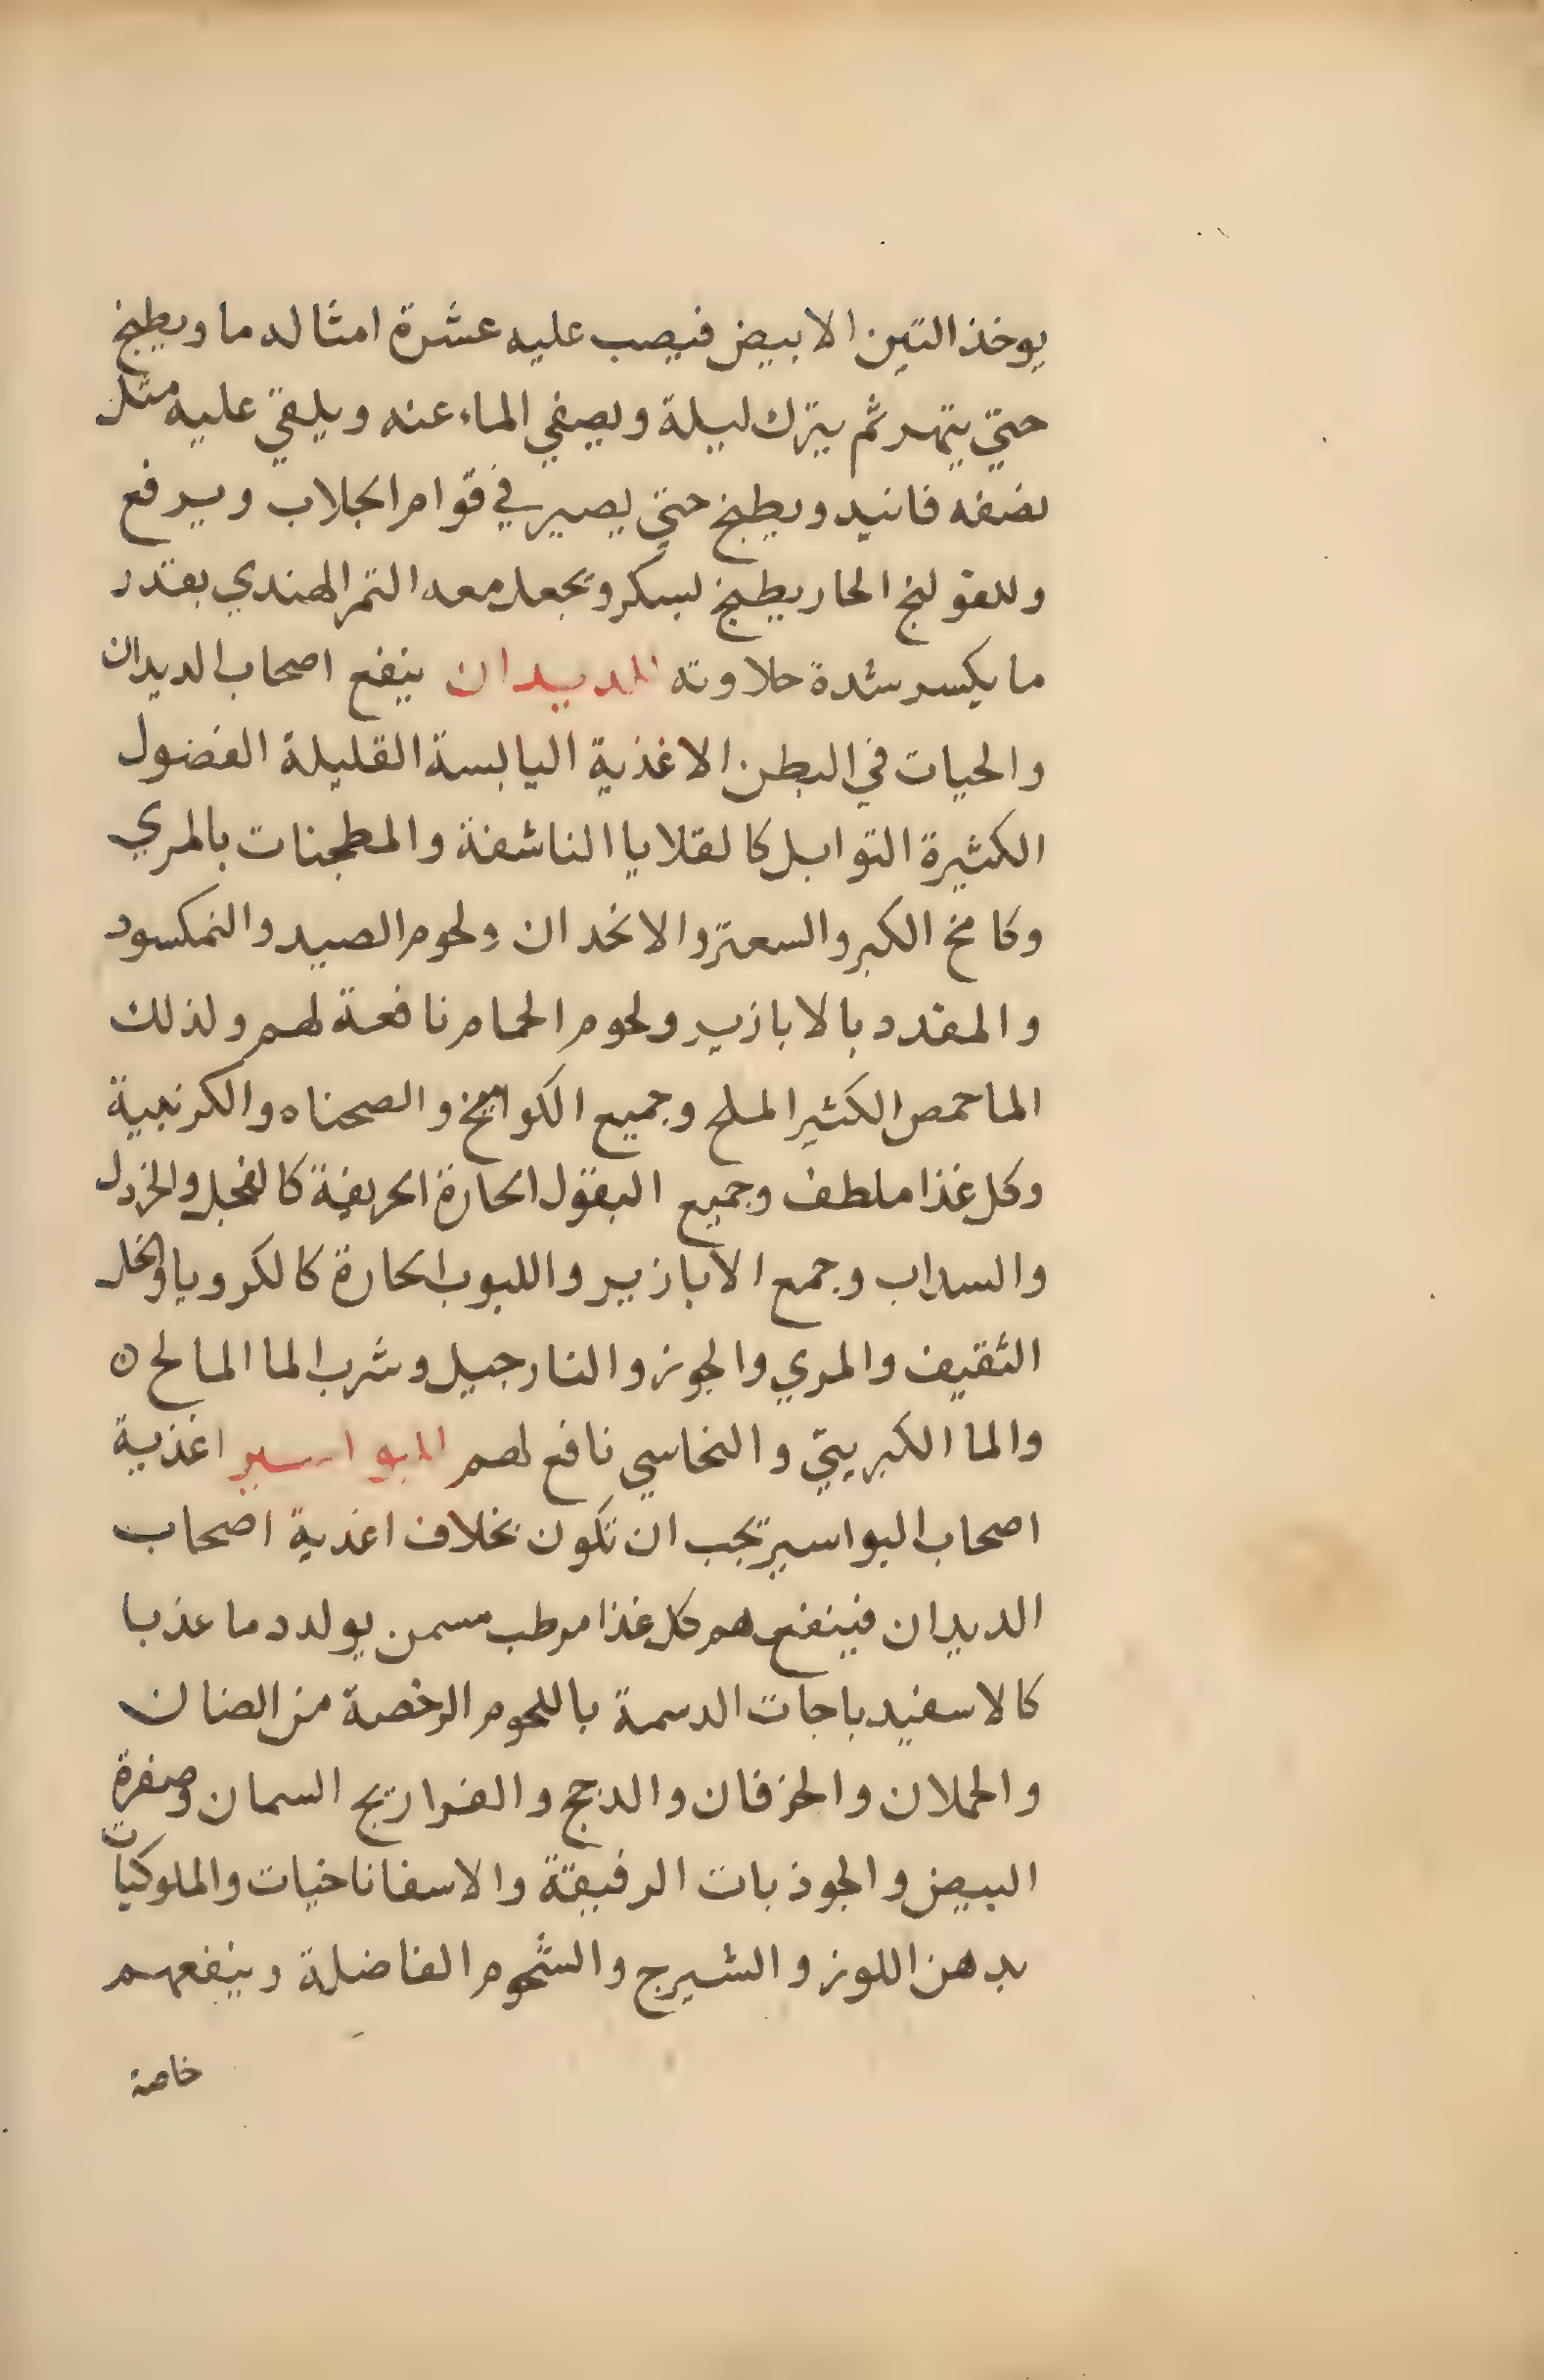 يوخذ التين الابيض فيصب عليه عشرة امثاله ما ويطبخ
حتي يتهر ثم يترك ليلة ويصفي الماء عنه ويلقي عليه مثل
نصفه فانيد ويطبخ حتي يصير في قوام الجلاب ويرفع
وللقولنج الحار يطبخ بسكر وتجعل معه التمر الهندي بقدر
ما يكسر شدة حلاوته للديدان ينفع اصحاب الديدان
والحيات في البطن الاغذية اليابسة القليلة الفضول
الكثيرة التوابل كالقلايا الناشفة والمطجنات بالمري
وكامخ الكبر والسعتر والانجدان ولحوم الصيد والنمكسود
والمقدد بالابازير ولحوم الحمام نافعة لهم ولذلك
الماحمص الكثير الملح وجميع الكواميخ والصحناه والكرنبية
وكل غذا ملطف وجميع البقول الحارة الحريفة كالفجل والخردل
والسداب وجمع الابازير واللبوب الحارة كالكرويا والخل
الثقيف والمري والجوز والنارجيل وشرب الما المالح ن
والما الكبريتي والنحاسي نافع لهم البواسير اغذية
اصحاب البواسير تجب ان تكون بخلاف اغذية اصحاب
الديدان فينفع هم كل غذا مرطب مسمن يولد دما عذبا
كالاسفيدباجات الدسمة باللحوم الرخصة من الضان
والحملان والخرفان والدجج والفراريج السمان وصفرة
البيض والجوذبات الرقيقة والاسفاناخيات والملوكيات
بدهن اللوز والشيرج والشحوم الفاضلة وينفعهم
خاصة